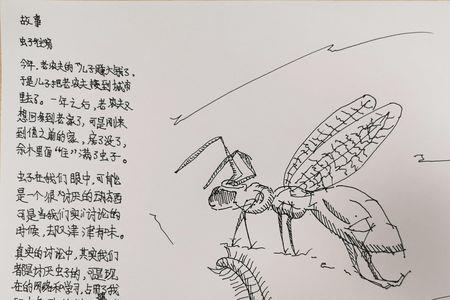 故事
虫子住宿
今年,老农夫的儿子赚大钱了,
于是儿子把老农夫接到城市
里去了。一年之后,老农夫又
想回来到老家了,可是刚来
到住之前的家,房子没了,
余木里面“住”满了虫子。
虫子在我们眼中,可能
是一个很讨厌的动物东西
可是当我们实讨论的
时候,去又津津有味。
真实的讨论中,其实我们
都是讨厌虫子的,可是现
在的网络和学习,占用了我